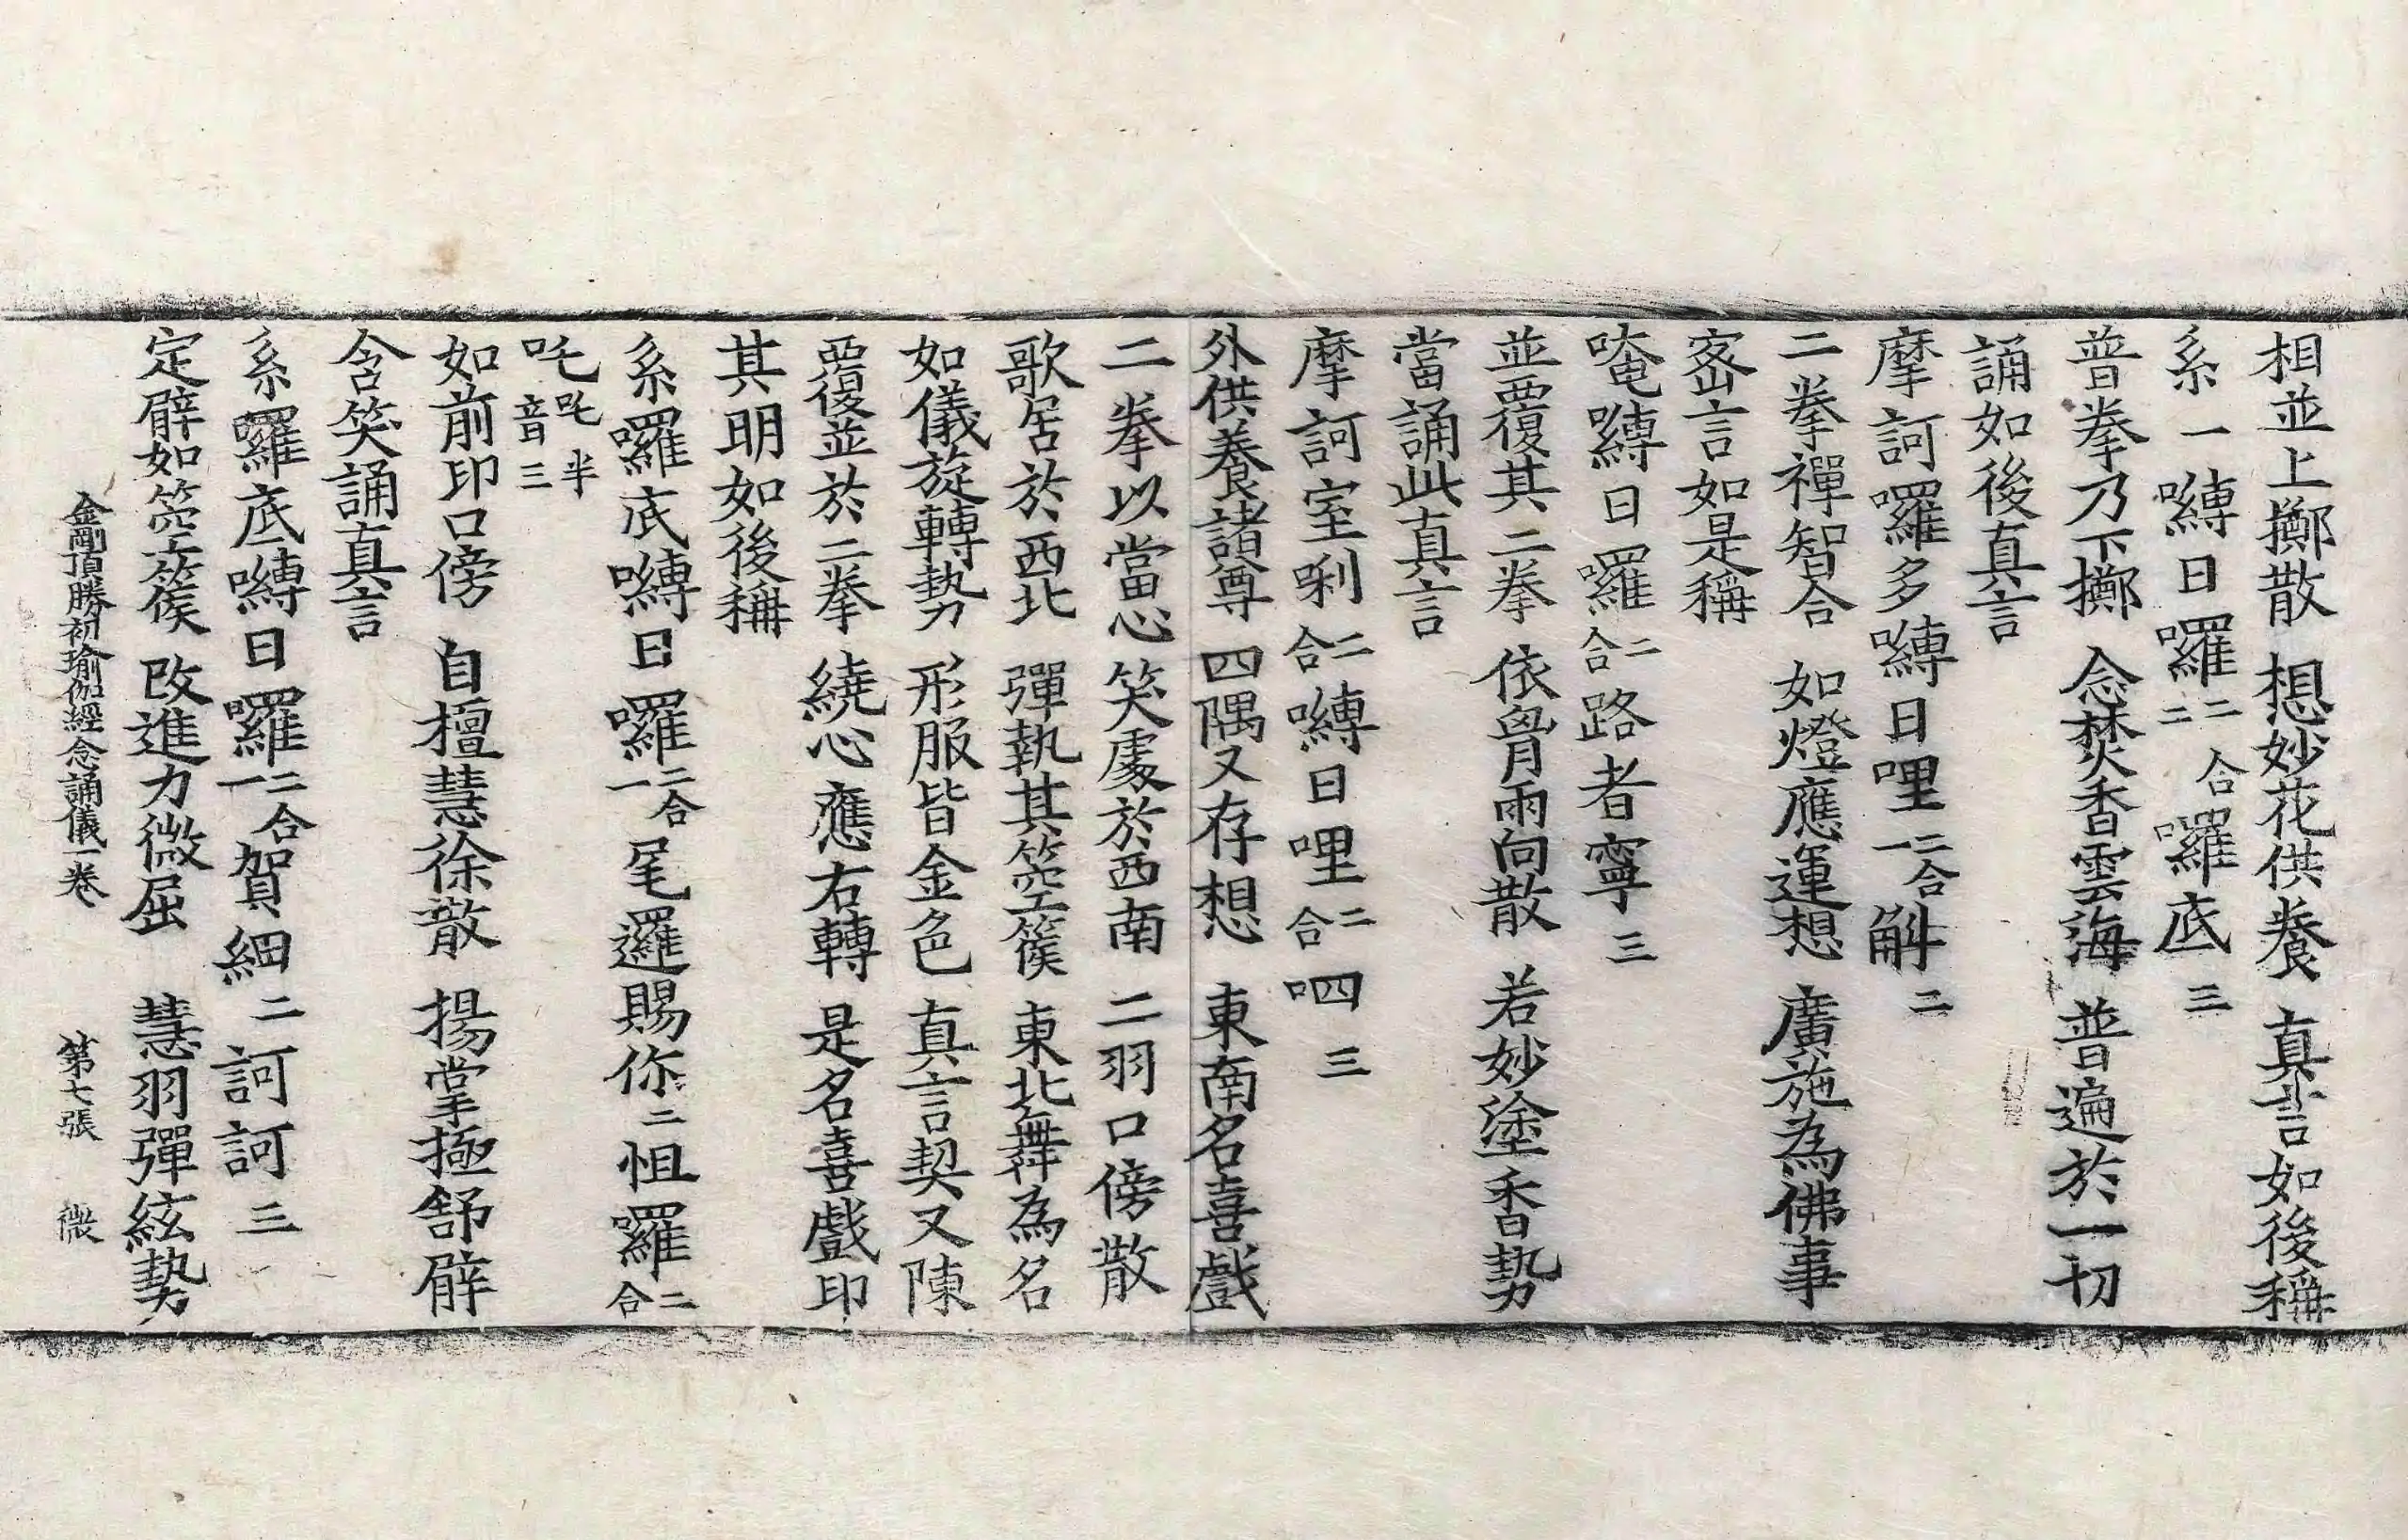 相並上擲散　想妙花供養　真言如後稱
系一嚩日囉二合二囉底三
普拳乃下擲　念焚香雲海　普遍於一切
誦如後真言
摩訶囉多嚩日哩二合一斛二
二拳禪智合　如燈應運想　廣施為佛事
密言如是稱
唵嚩日囉二合路者寧三
並覆其二拳　依䏶兩向散　若妙塗香勢
當誦此真言
摩訶室唎二合嚩日哩二合呬三
外供養諸尊　四隅又存想　東南名喜戲
二拳以當心　笑處於西南　二羽口傍散
歌居於西北　彈執其箜篌　東北舞為名
如儀旋轉勢　形服皆金色　真言契又陳
覆並於二拳　繞心應右轉　是名喜戲印
其明如後稱
系囉底嚩日囉二合一尾邏賜你二怛囉二合
吒吒半音三
如前印口傍　自檀慧徐散　揚掌極舒臂
含笑誦真言
系囉底嚩日囉二合一賀細二訶訶三
定臂如箜篌　改進力微屈　慧羽彈絃勢
金剛頂勝初瑜伽經念誦儀一卷　第七張　微